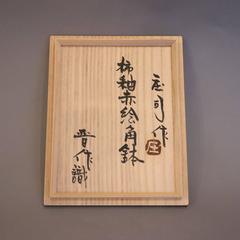 庄司作
庄
柿釉赤絵角鉢
晋作識